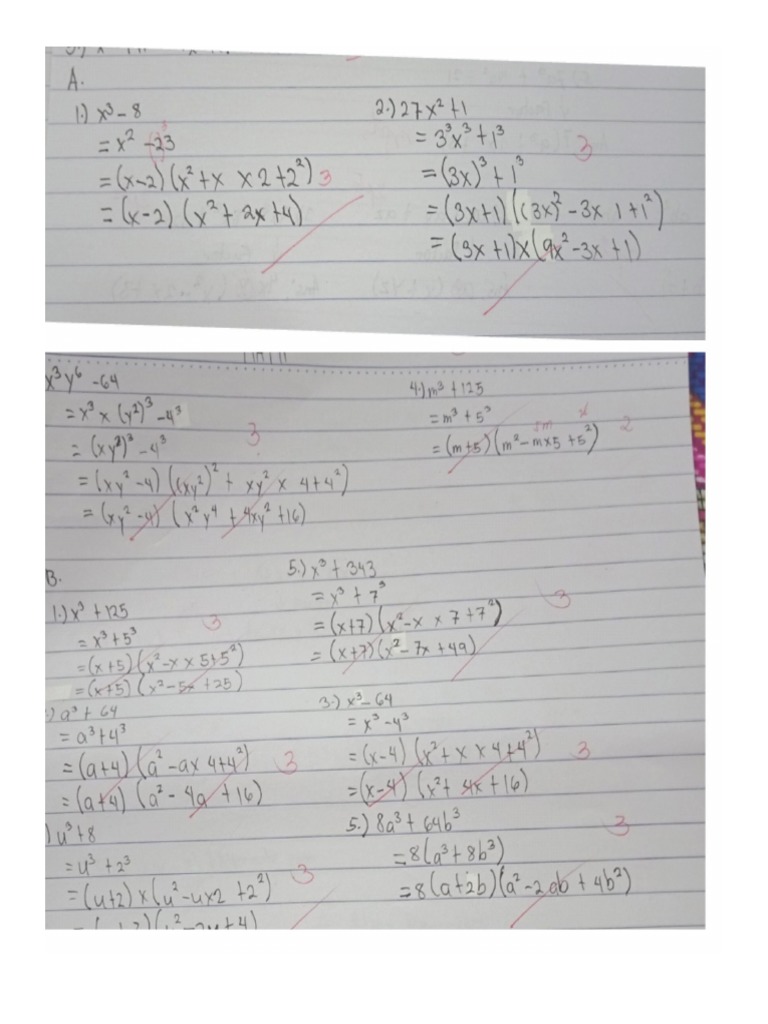 A.
1.) x³ - 8
= x² - 23
= (x-2) (x² + x × 2 + 2²) 3
= (x-2) (x² + 2x + 4)
2.) 27x² + 1
= 3³x³ + 1³
3
= (3x)³ + 1³
= (3x+1) ((3x)² - 3x 1 + 1²)
= (3x+1) x (9x² - 3x + 1)
x³y⁶ - 64
= x³ × (y²)³ - 4³
= (xy²)³ - 4³
3
= (xy² - 4) ((xy²)² + xy² × 4 + 4²)
= (xy² - 4) (x²y⁴ + 4xy² + 16)
4.) m³ + 125
= m³ + 5³
5m x
= (m+5) (m² - m×5 + 5²) 2
B.
1.) x³ + 125
3
= x³ + 5³
= (x+5) (x² - x × 5 + 5²)
= (x+5) (x² - 5x + 25)
5.) x³ + 343
= x³ + 7³
3
= (x+7) (x² - x × 7 + 7²)
= (x+7) (x² - 7x + 49)
.) a³ + 64
= a³ + 4³
= (a+4) (a² - a× 4 + 4²) 3
= (a+4) (a² - 4a + 16)
3.) x³ - 64
= x³ - 4³
= (x-4) (x² + x × 4 + 4²) 3
= (x-4) (x² + 4x + 16)
) u³ + 8
= u³ + 2³
= (u+2) × (u² - u×2 + 2²) 3
5.) 8a³ + 64b³
3
= 8(a³ + 8b³)
= 8 (a+2b) (a² - 2ab + 4b²)